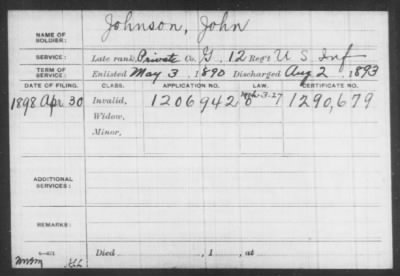 NAME OF SOLDIER: Johnson, John
SERVICE: Late rank, Private Co. G, 12 Reg't U S Inf
TERM OF SERVICE: Enlisted May 3, 1890 Discharged Aug 2, 1893
DATE OF FILING. CLASS. APPLICATION NO. LAW. CERTIFICATE NO.
1898 Apr 30 Invalid, 1206942 1290,679
Widow,
Minor,
ADDITIONAL SERVICES:
REMARKS:
Died , 1 , at